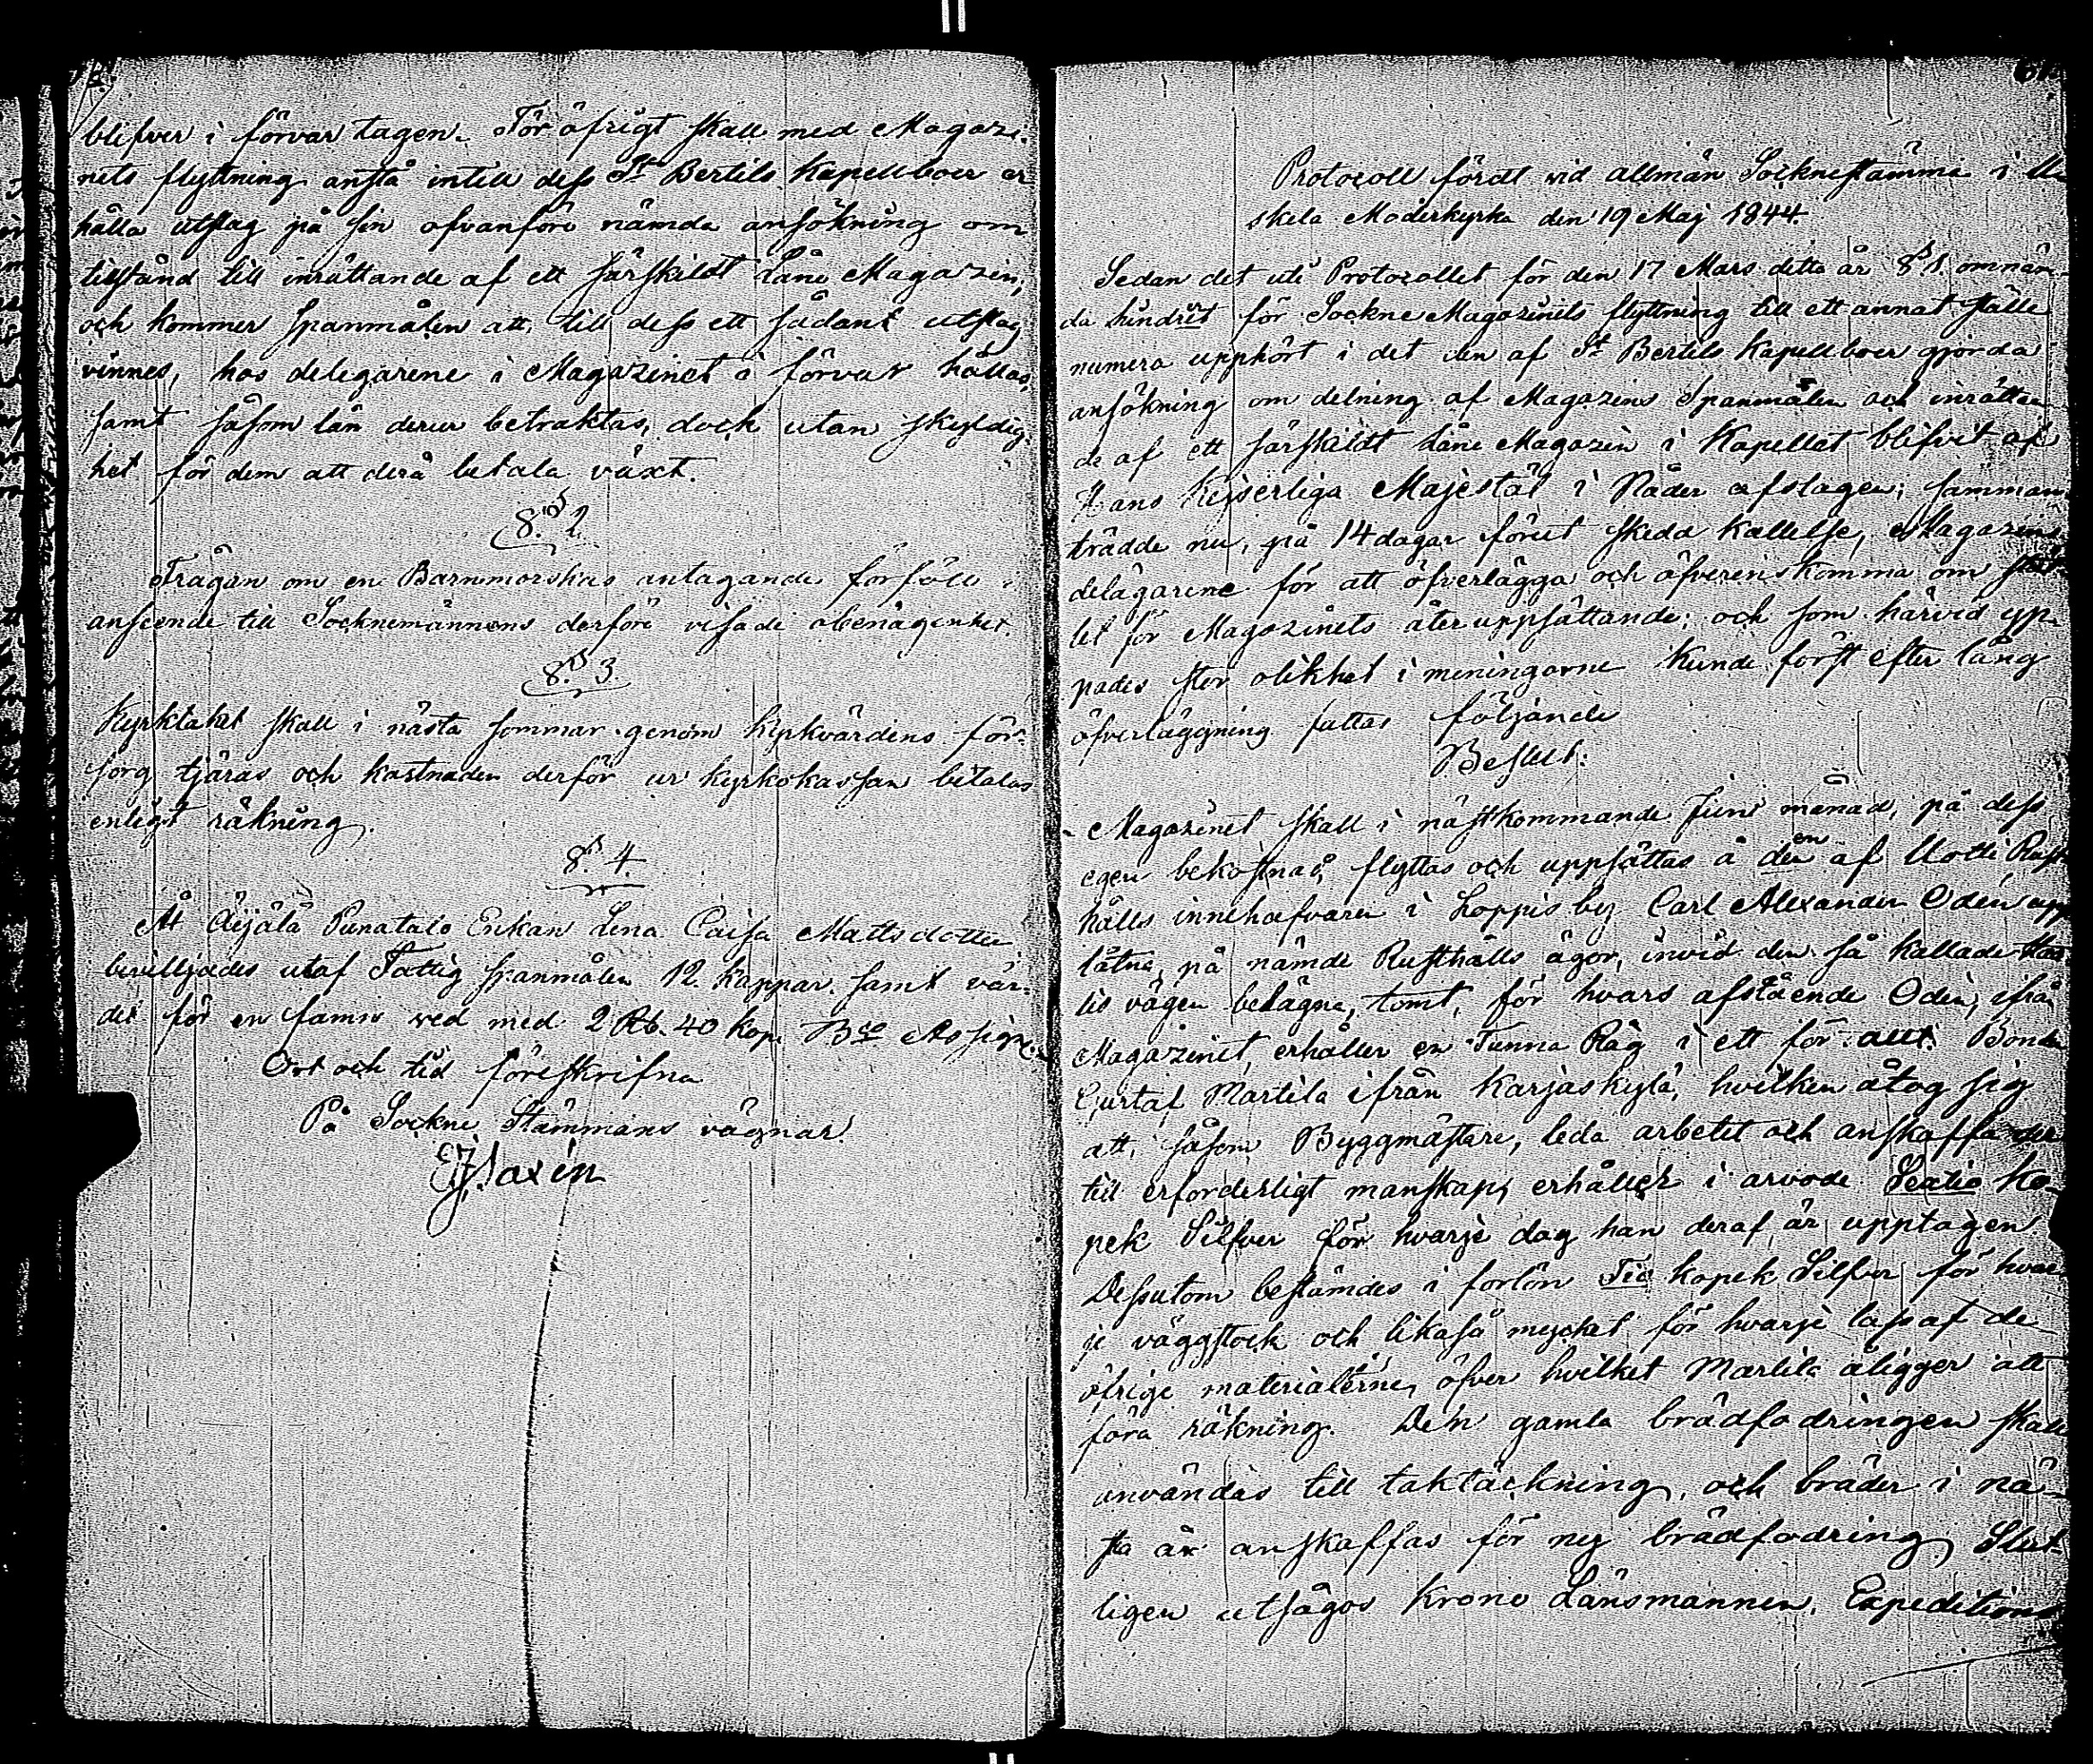 blifver i förvar tagen. För öfrigt skall med Magazi-
nets flyttning anstå intill dess St Bertils Kapellboer er
hålla utslag på sin ofvanföre nämda ansökning om
tillstånd till inrättande af ett särskildt Låne Magazin,
och kommer Spanmålen att, till dess ett sådant utslag
vinnes, hos delegarene i Magazinet i förvar hållas,
samt såsom lån derur betraktas, dock utan skyldig-
het för dem att derå betala växt.
§. 2.
Frågan om en Barnmorskas antagande förföll i
anseende till Socknemännens derföre visade obenägenhet.
§. 3.
Kyrktaket skall i nästa sommar genom Kyrkvärdens för-
sorg tjäras och kostnaden derför ur kyrkokassan betalas
enligt räkning.
§. 4.
Åt Äijälä Punatalo Enkan Lena Caisa Mattsdotter
beviljades utaf Fattig spanmålen 12 kappar samt vär-
det för en famn ved med 2 Rb. 40 kop. Bco Assign.
Ort och tid föreskrifna
På Sockne Stämmans vägnar
Saxén
Protocoll fördt vid allmän Socknestämma i U
skela Moderkyrka den 19 Maj 1844.
Sedan det uti Protocollet för den 17 Mars detta år § 1. omnäm
da hindret för Sockne Magazinets flyttning till ett annat ställe
numera upphört i det den af St Bertils Kapellboer gjorda
ansökning om delning af Magazins Spanmålen och inrättan
de af ett särskildt Låne Magazin i Kapellet blifvit af
Hans Kejserliga Majestät i Nåder afslagen; samman
trädde nu, på 14 dagar förut skedd kallelse, Magazins
delägarene för att öfverlägga och öfverenskomma om stäl
let för Magazinets återuppsättande; och som härvid yp-
pades stor olikhet i meningarne kunde först efter lång
öfverläggning fattas följande
Beslut:
Magazinet skall i nästkommande Juni månad, på dess
egen bekostnad, flyttas och uppsättas å den af Uotti Rust
hålls innehafvaren i Loppis by Carl Alexander Odén upp
låtna, på nämde Rusthålls ägor, invid den så kallade
tis vägen belägna, tomt, för hvars afstående Odén, ifrån
Magazinet, erhåller en Tunna Råg i ett för allt. Bonden
Gustaf Martila ifrån Karjaskylä, hvilken åtog sig
att, såsom Byggmästare, leda arbetet och anskaffa der
till erforderligt manskap, erhåller i arvode Sextio ko-
pek Silfver för hvarje dag han deraf är upptagen.
Dessutom bestämdes i forlön Tio kopek Silfver för hvar
je väggstock och likaså mycket för hvarje lass af de
öfrige materialierne, öfver hvilket Martila åligger att
föra räkning. Den gamla brädfodringen skall
användas till taktäckning, och bräder i nä-
sta år anskaffas för ny brädfodring. Slut-
ligen utsågos Krono Länsmannen, Expeditions